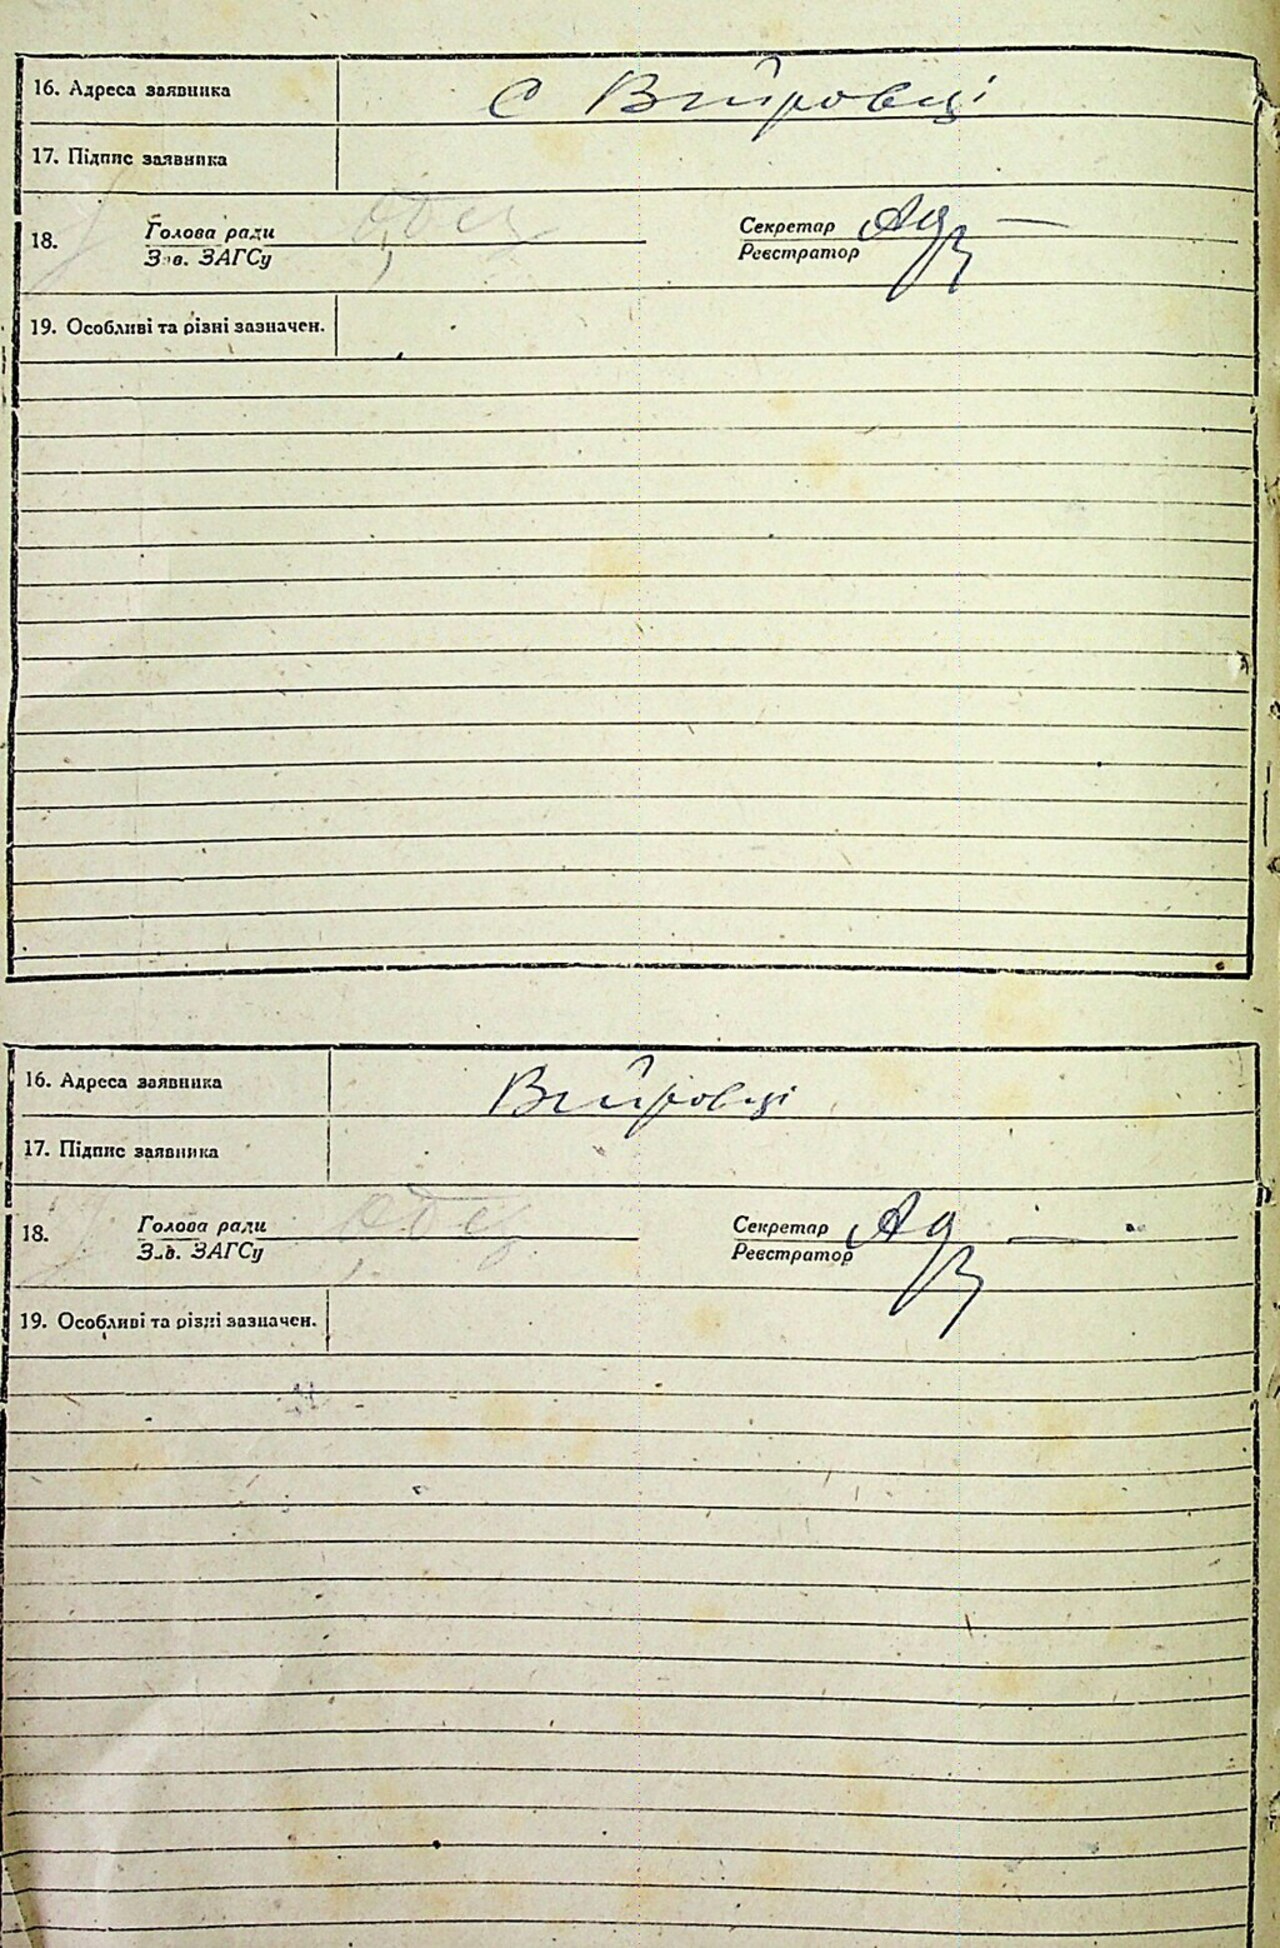 16. Адреса заявника с Війтровці
17. Підпис заявника
18. Голова ради Секретар
Зав. ЗАГСу Реєстратор
19. Особливі та різні зазначен.
16. Адреса заявника
17. Підпис заявника
18. Голова ради Секретар
Зав. ЗАГСу Реєстратор
19. Особливі та різні зазначен.